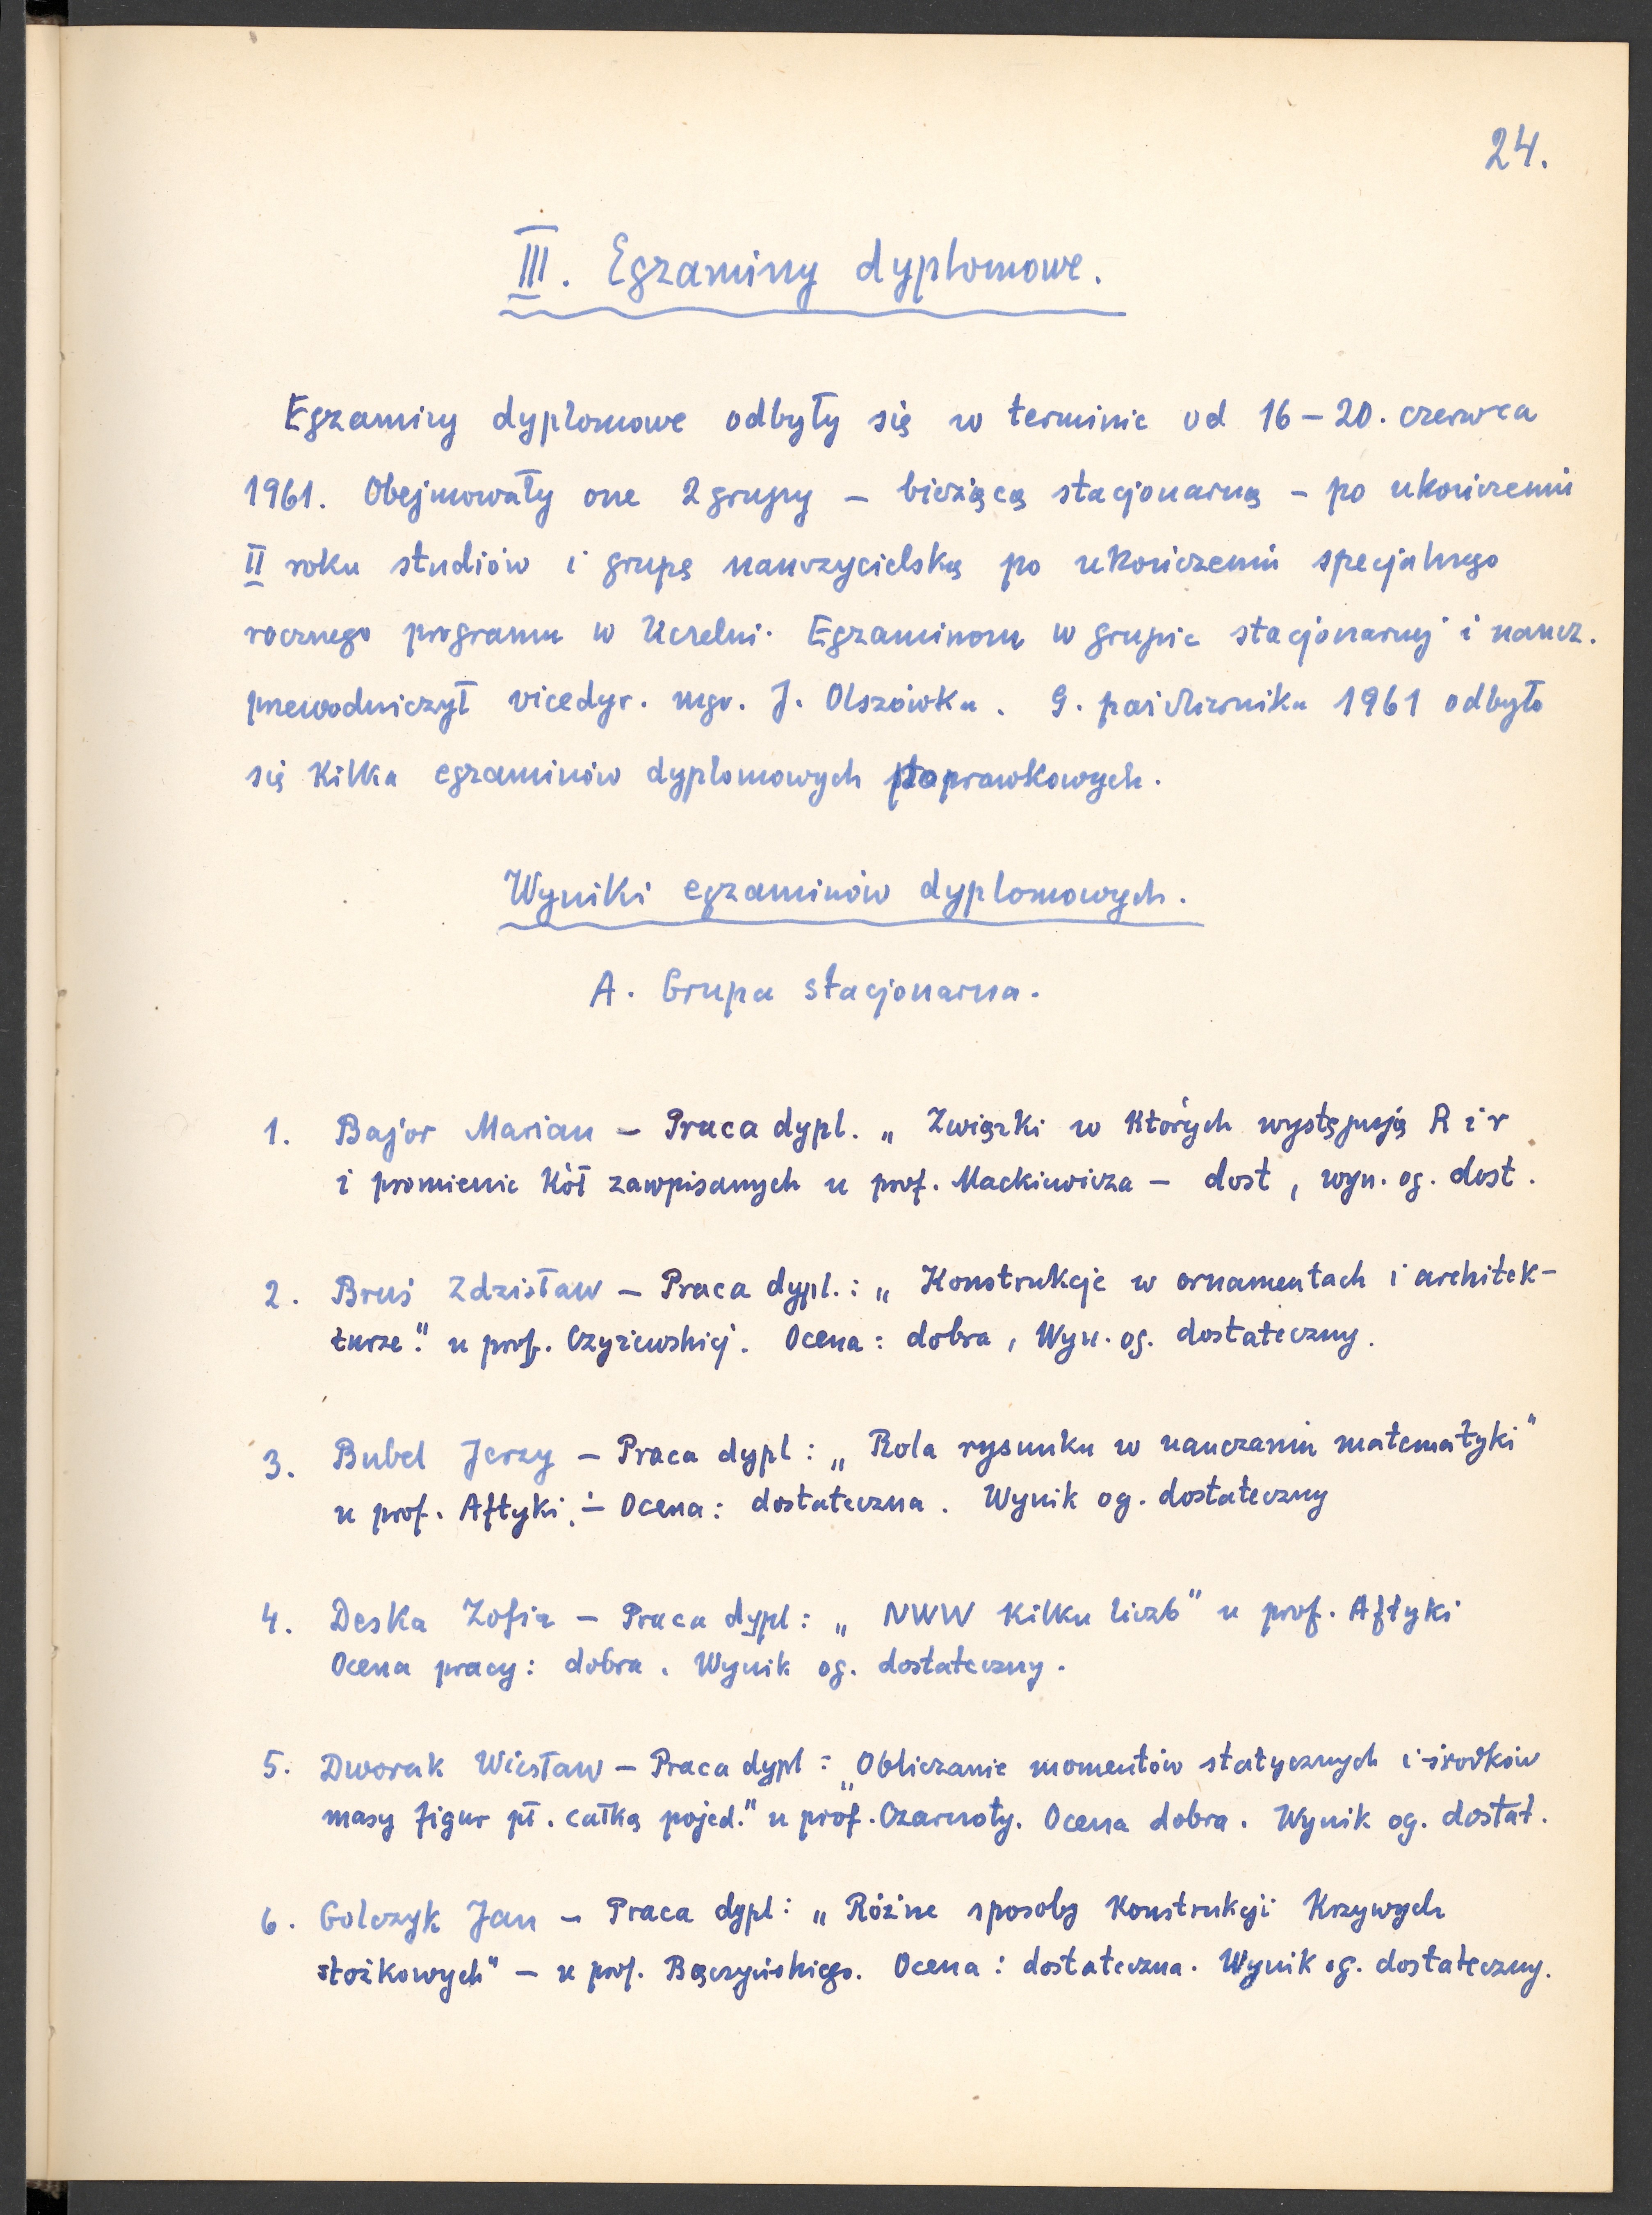 24.
III. Egzaminy dyplomowe.
Egzaminy dyplomowe odbyły się w terminie od 16 – 20. czerwca
1961. Obejmowały one 2 grupy – bieżącą stacjonarną – po ukończeniu
II roku studiów i grupę nauczycielską po ukończeniu specjalnego
rocznego programu w Uczelni. Egzaminom w grupie stacjonarnej i naucz.
przewodniczył vicedyr. mgr. J. Olszówka. 9. października 1961 odbyło
się kilka egzaminów dyplomowych poprawkowych.
Wyniki egzaminów dyplomowych.
A. Grupa stacjonarna.
1. Bajor Marian – Praca dypl. „Związki w których występują R i r
i promienie kół zawpisanych u prof. Mackiewicza – dost, wyn. og. dost.
2. Bruś Zdzisław – Praca dypl.: „Konstrukcje w ornamentach i architek-
turze." u prof. Czyżewskiej. Ocena: dobra, Wyn. og. dostateczny.
3. Bubel Jerzy – Praca dypl: „Rola rysunku w nauczaniu matematyki"
u prof. Aftyki. – Ocena: dostateczna. Wynik og. dostateczny
4. Deska Zofia – Praca dypl: „NWW kilku liczb" u prof. Aftyki
Ocena pracy: dobra. Wynik og. dostateczny.
5. Dworak Wiesław – Praca dypl: „Obliczanie momentów statycznych i środków
masy figur pł. całką pojed." u prof. Czarnoty. Ocena dobra. Wynik og. dostat.
6. Golczyk Jan – Praca dypl: „Różne sposoby konstrukcji krzywych
stożkowych" – u prof. Bączyńskiego. Ocena: dostateczna. Wynik og. dostateczny.